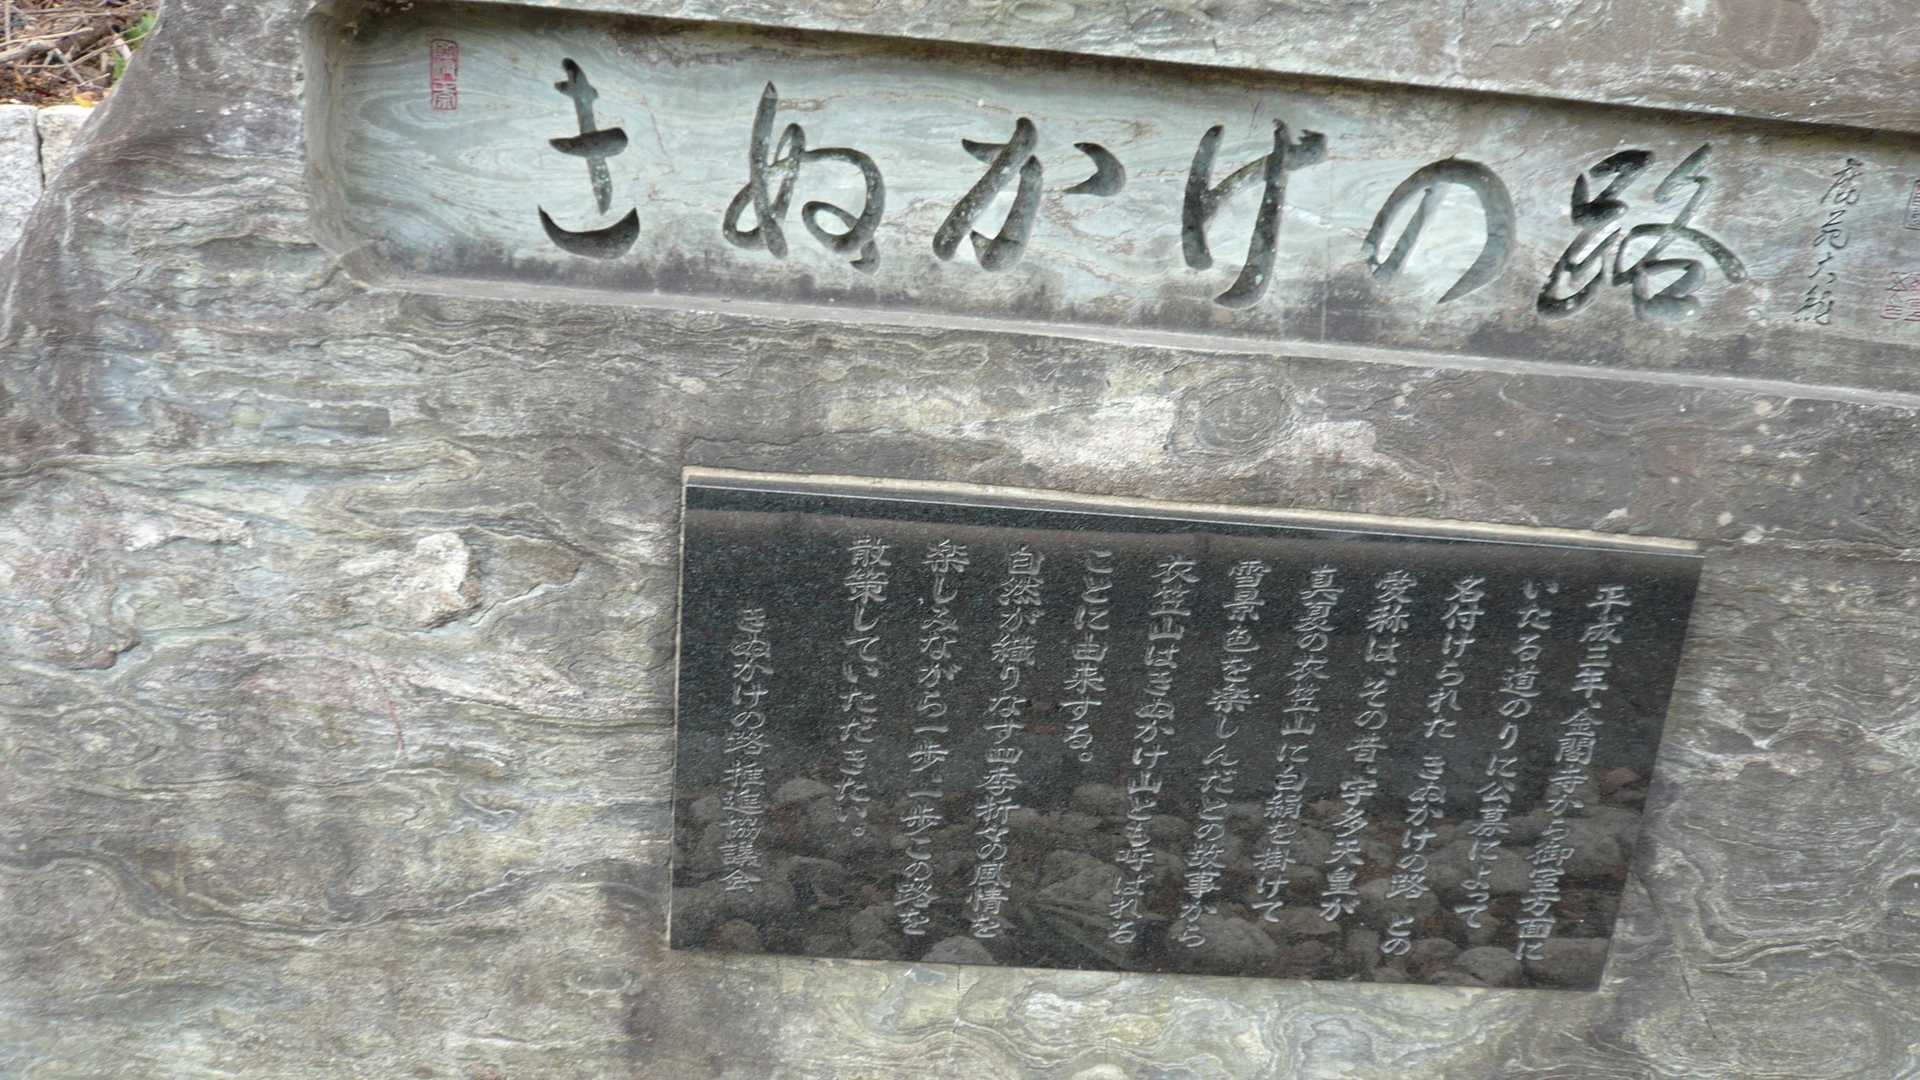 きぬかけの路
平成三年、金閣寺から御室方面に
いたる道のりに公募によって
名付けられた きぬかけの路 との
愛称は、その昔、宇多天皇が
真夏の衣笠山に白絹を掛けて
雪景色を楽しんだとの故事から
衣笠山はきぬかけ山とも呼ばれる
ことに由来する。
自然が織りなす四季折々の風情を
楽しみながら一歩、一歩この路を
散策していただきたい。
きぬかけの路推進協議会